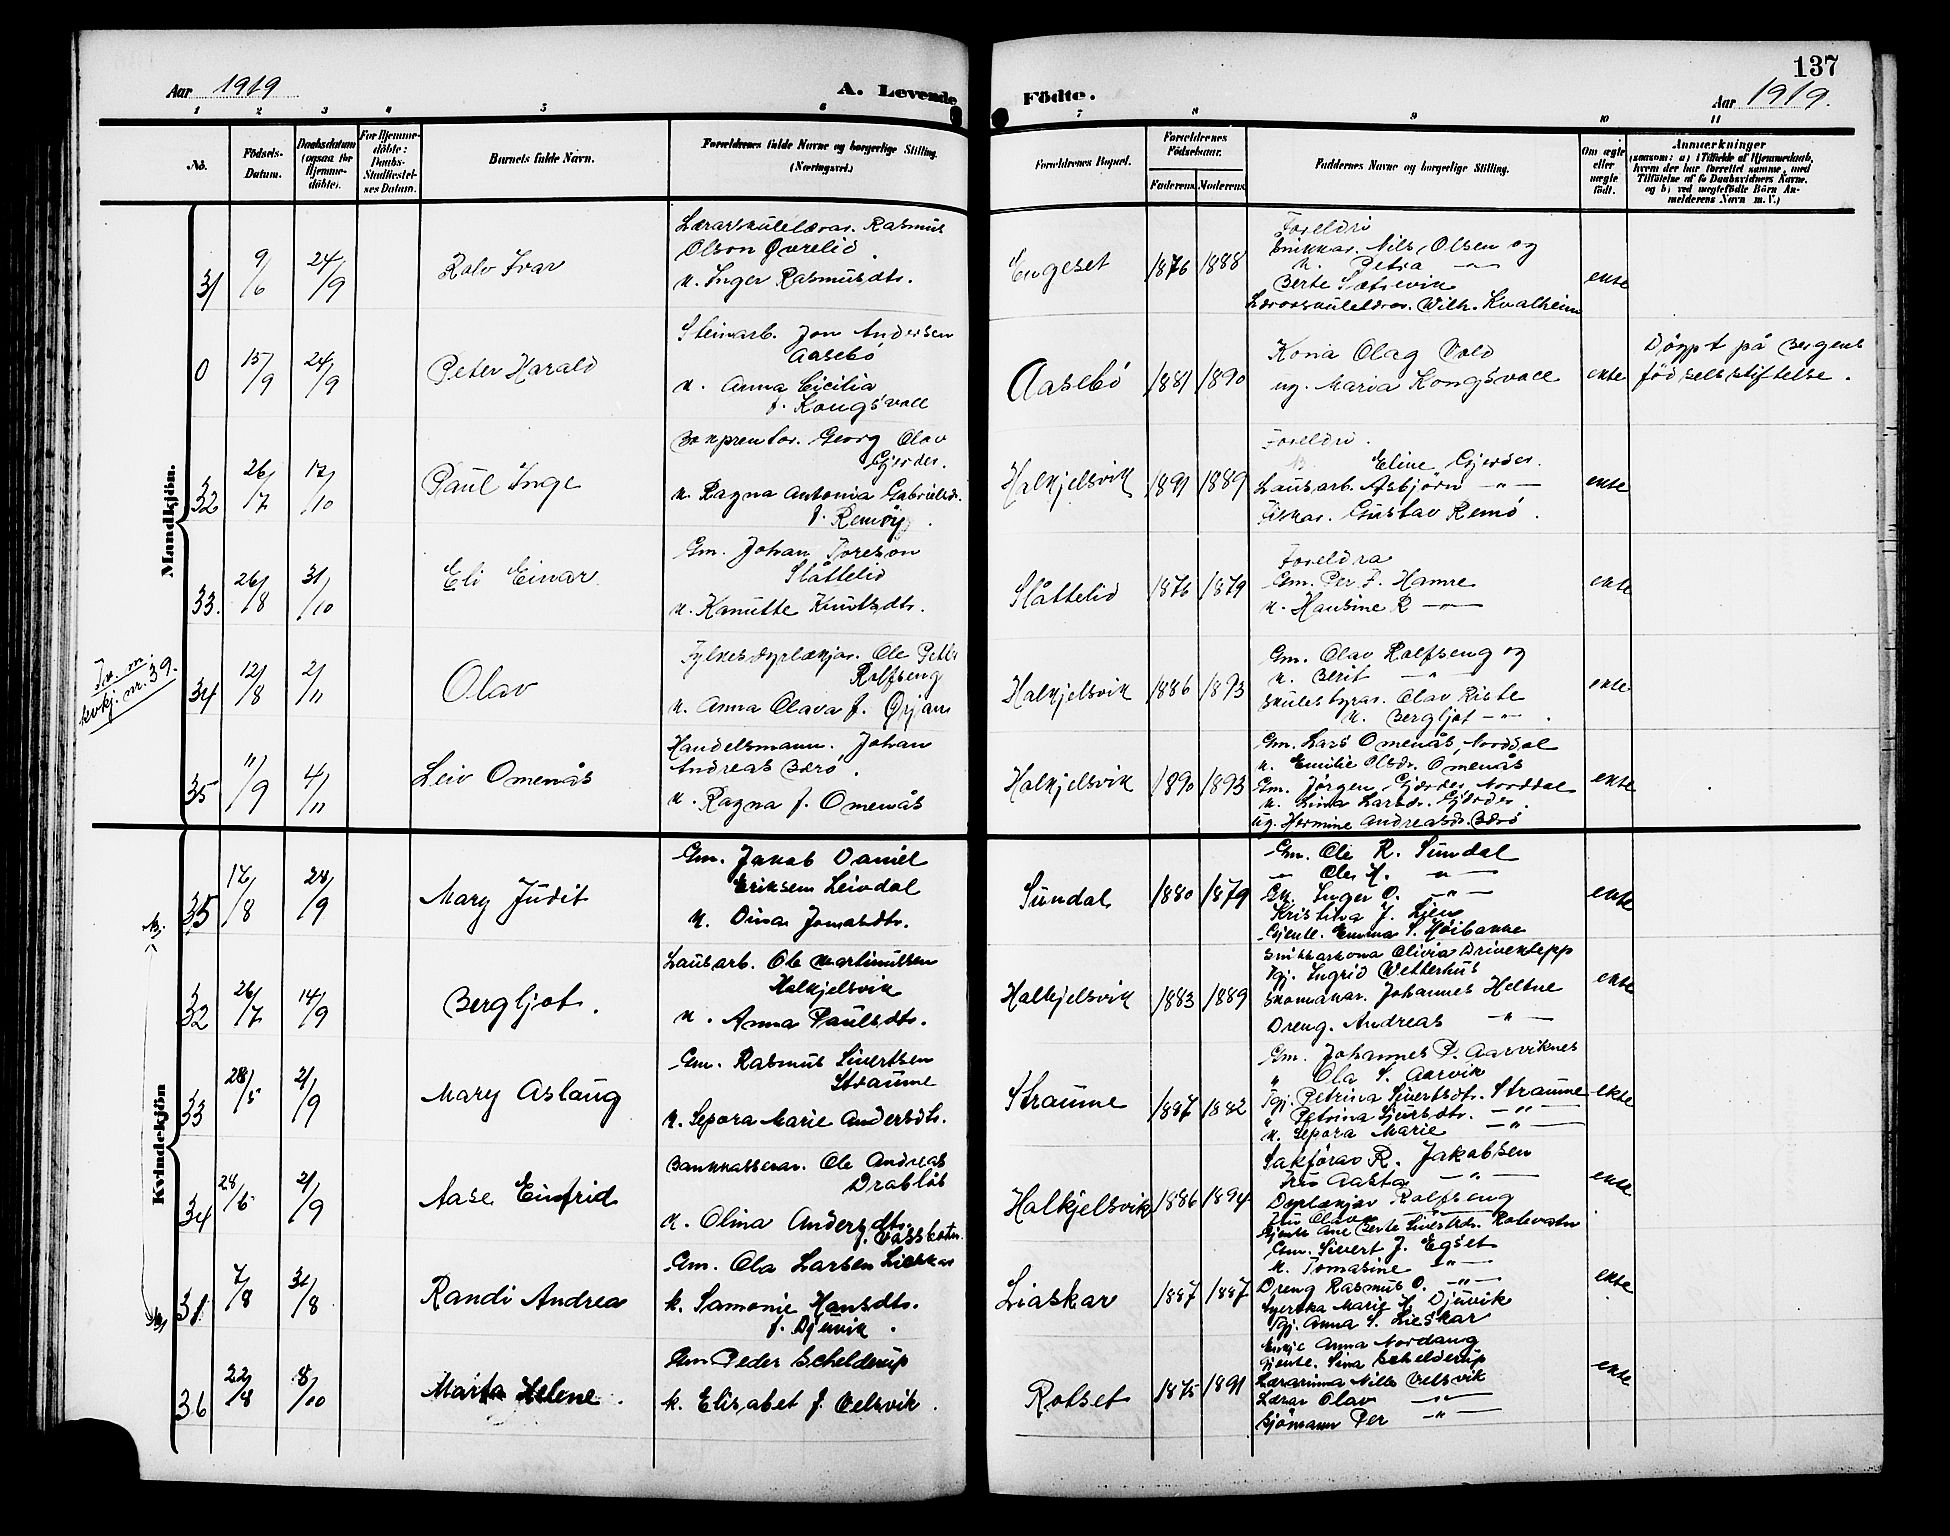 137
Aar 1919 A. Levende Födte. Aar 1919.
1 2 3 4 5 6 7 8 9 10 11
No.
Födsels-Datum.
Daabsdatum (ogsaa for Hjemme-döbte).
For Hjemme-döbte: Daabs-Stadfæstel-ses Datum.
Barnets fulde Navn.
Forældrenes fulde Navne og borgerlige Stilling. (Næringsvei.)
Forældrenes Bopæl.
Forældrenes Födselsaar.
Faderens Moderens
Faddernes Navne og borgerlige Stilling.
Om ægte eller uægte födt.
Anmærkninger
(saasom: a) i Tilfælde af Hjemmedaab,
hvem der har forrettet samme, med
Tilföielse af to Daabsvidners Navne.
og b) ved uægtefödte Börn An-
melderens Navn m. V.)
Mandkjön.
31 9/6 24/9 Rolv Ivar
Lærarskulelærar. Rasmus
Olson Øvrelid.
k. Inger Rasmusdtr.
Engeset 1876 1888
Foreldri
Snikkar. Nils Olsen og
k. Petra -"-
Berte Sætrevik
Lærarskulelærar. Vilh. Kvalheim
ekte
0 15/9 24/9 Peter Harald
Steinarb. Jon Andersen
Aasebö
k. Anna Cicilia
f. Kongsvoll
Aasebö 1881 1890
Kona Olag Vold
ug. Maria Kongsvoll
ekte
Döypt på Bergens
födselsstiftelse.
32 26/7 17/10 Paul Inge
Bokprentar. Georg Olav
Gjerder.
k. Ragna Antonia Gabrielsd.
f. Remöy.
Halkjelsvik 1891 1889
Foreldri.
Eline Gjerder.
Lausarb. Asbjörn -"-
Fiskar. Gustav Remö.
ekte
33. 26/8 31/10 Eli Einar
Gm. Johan Toreson
Slåttelid
k. Kanutte Knutsdtr.
Slåttelid 1876 1879
Foreldra
Gm. Per F. Hamre
k. Hansine R -"-
ekte
Tv. m.
kvkj. nr. 39.
34 12/8 2/11 Olav
Fylkesdyrlækjar. Ole Peter
Rolfseng
k. Anna Olava f. Ørjan
Halkjelsvik 1886 1893
Gm. Olav Rolfseng og
k. Berit -"-
Skulestyrar. Olav Riste
k. Bergljot -"-.
ekte
35 11/9 4/11 Leiv Omenås
Handelsmann. Johan
Andreas Bærö.
k. Ragna f. Omenås
Halkjelsvik 1890 1893
Gm. Lars Omenås, Norddal
k. Emilie Olsdr. Omenås
Gm. Jörgen Gjærder Norddal
k. Lina Larsdr. Gjerder.
ug. Hermine Andreasdr. Bærö
ekte
Kvindekjön
35 17/8 28/9 Mary Judit
Gm. Jakob Daniel
Eriksen Leivdal
k. Oina Jonasdtr.
Sundal 1880 1879
Gm. Ole R. Sundal
-"- Ole K. -"-
Gk. Inger O. -"-
Kristina J. Lien
Gjente. Emma S. Höibakke
ekte
32 26/7 14/9 Bergljot.
Lausarb. Ole Martinussen
Halkjelsvik
k. Anna Paulsdtr.
Halkjelsvik 1883 1889
Snikkarkona Olivia Driveklepp
Tgj. Ingrid Vetterhus
Skomakar. Johannes Heltne
Dreng. Andreas -"-
ekte
33 28/5 21/9 Mary Aslaug
Gm. Rasmus Sivertsen
Straume
k. Sepora Marie Andersdtr.
Straume 1887 1882
Gm. Johannes P. Aarviknes
" Ola S. Aarvik
Tgj. Petrina Sjurtsdtr. Straume
" Petrina Sjursdtr. -"-
k. Sepora Marie -"-
ekte
34 28/6 21/9 Aase Einfrid
Bankkasserar. Ole Andreas
Drabløs
k. Olina Andersdtr.
Halkjelsvik 1886 1894
Sakförar R. Jakobsen
Fru Aasta -"-
Dyrlækjar Rolfseng
Fru Olava -"-
Gjente Ane Berte Sivertsdr. Rotevatn
ekte
31 7/8 31/8 Randi Andrea
Gm. Ola Larsen Lieskar
k. Samonie Hansdtr.
f. Djuvik.
Liaskar 1887 1887
Gm. Sivert J. Egset
k. Tomasine -"-
Dreng Rasmus O. -"-
Syerska Marie H. Djuvik
Tgj. Anna S. Lieskar
ekte
36 22/8 8/10 Marta Helene.
Gm Peder Schelderup
k. Elisabet f. Velsvik.
Rotset 1875 1891
Enkje Anna Nordang
Gjente. Sina Schelderup
Lærarinna Nille Velsvik
Lærar Olav -"-
Sjömann Per -"-
ekte